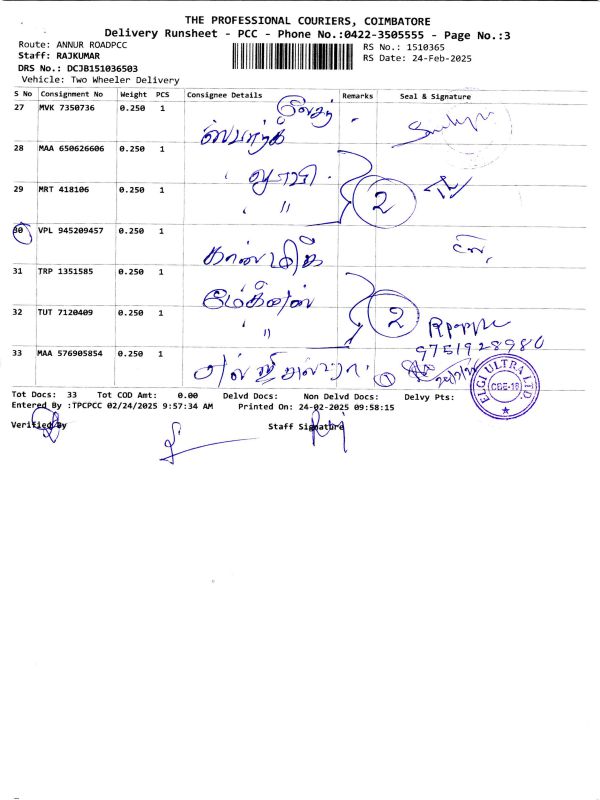 THE PROFESSIONAL COURIERS, COIMBATORE
Delivery Runsheet - PCC - Phone No.:0422-3505555 - Page No.:3
Route: ANNUR ROADPCC
RS No.: 1510365
Staff: RAJKUMAR
RS Date: 24-Feb-2025
DRS No.: DCJB151036503
Vehicle: Two Wheeler Delivery
S No Consignment No Weight PCS Consignee Details Remarks Seal & Signature
27 MVK 7350736 0.250 1
28 MAA 650626606 0.250 1
29 MRT 418106 0.250 1 " 2
30 VPL 945209457 0.250 1
31 TRP 1351585 0.250 1
32 TUT 7120409 0.250 1 " 2
9751928980
33 MAA 576905854 0.250 1 1
ELGI ULTRA LTD. CBE-18
Tot Docs: 33 Tot COD Amt: 0.00 Delvd Docs: Non Delvd Docs: Delvy Pts:
Entered By :TPCPCC 02/24/2025 9:57:34 AM Printed On: 24-02-2025 09:58:15
Verified By Staff Signature